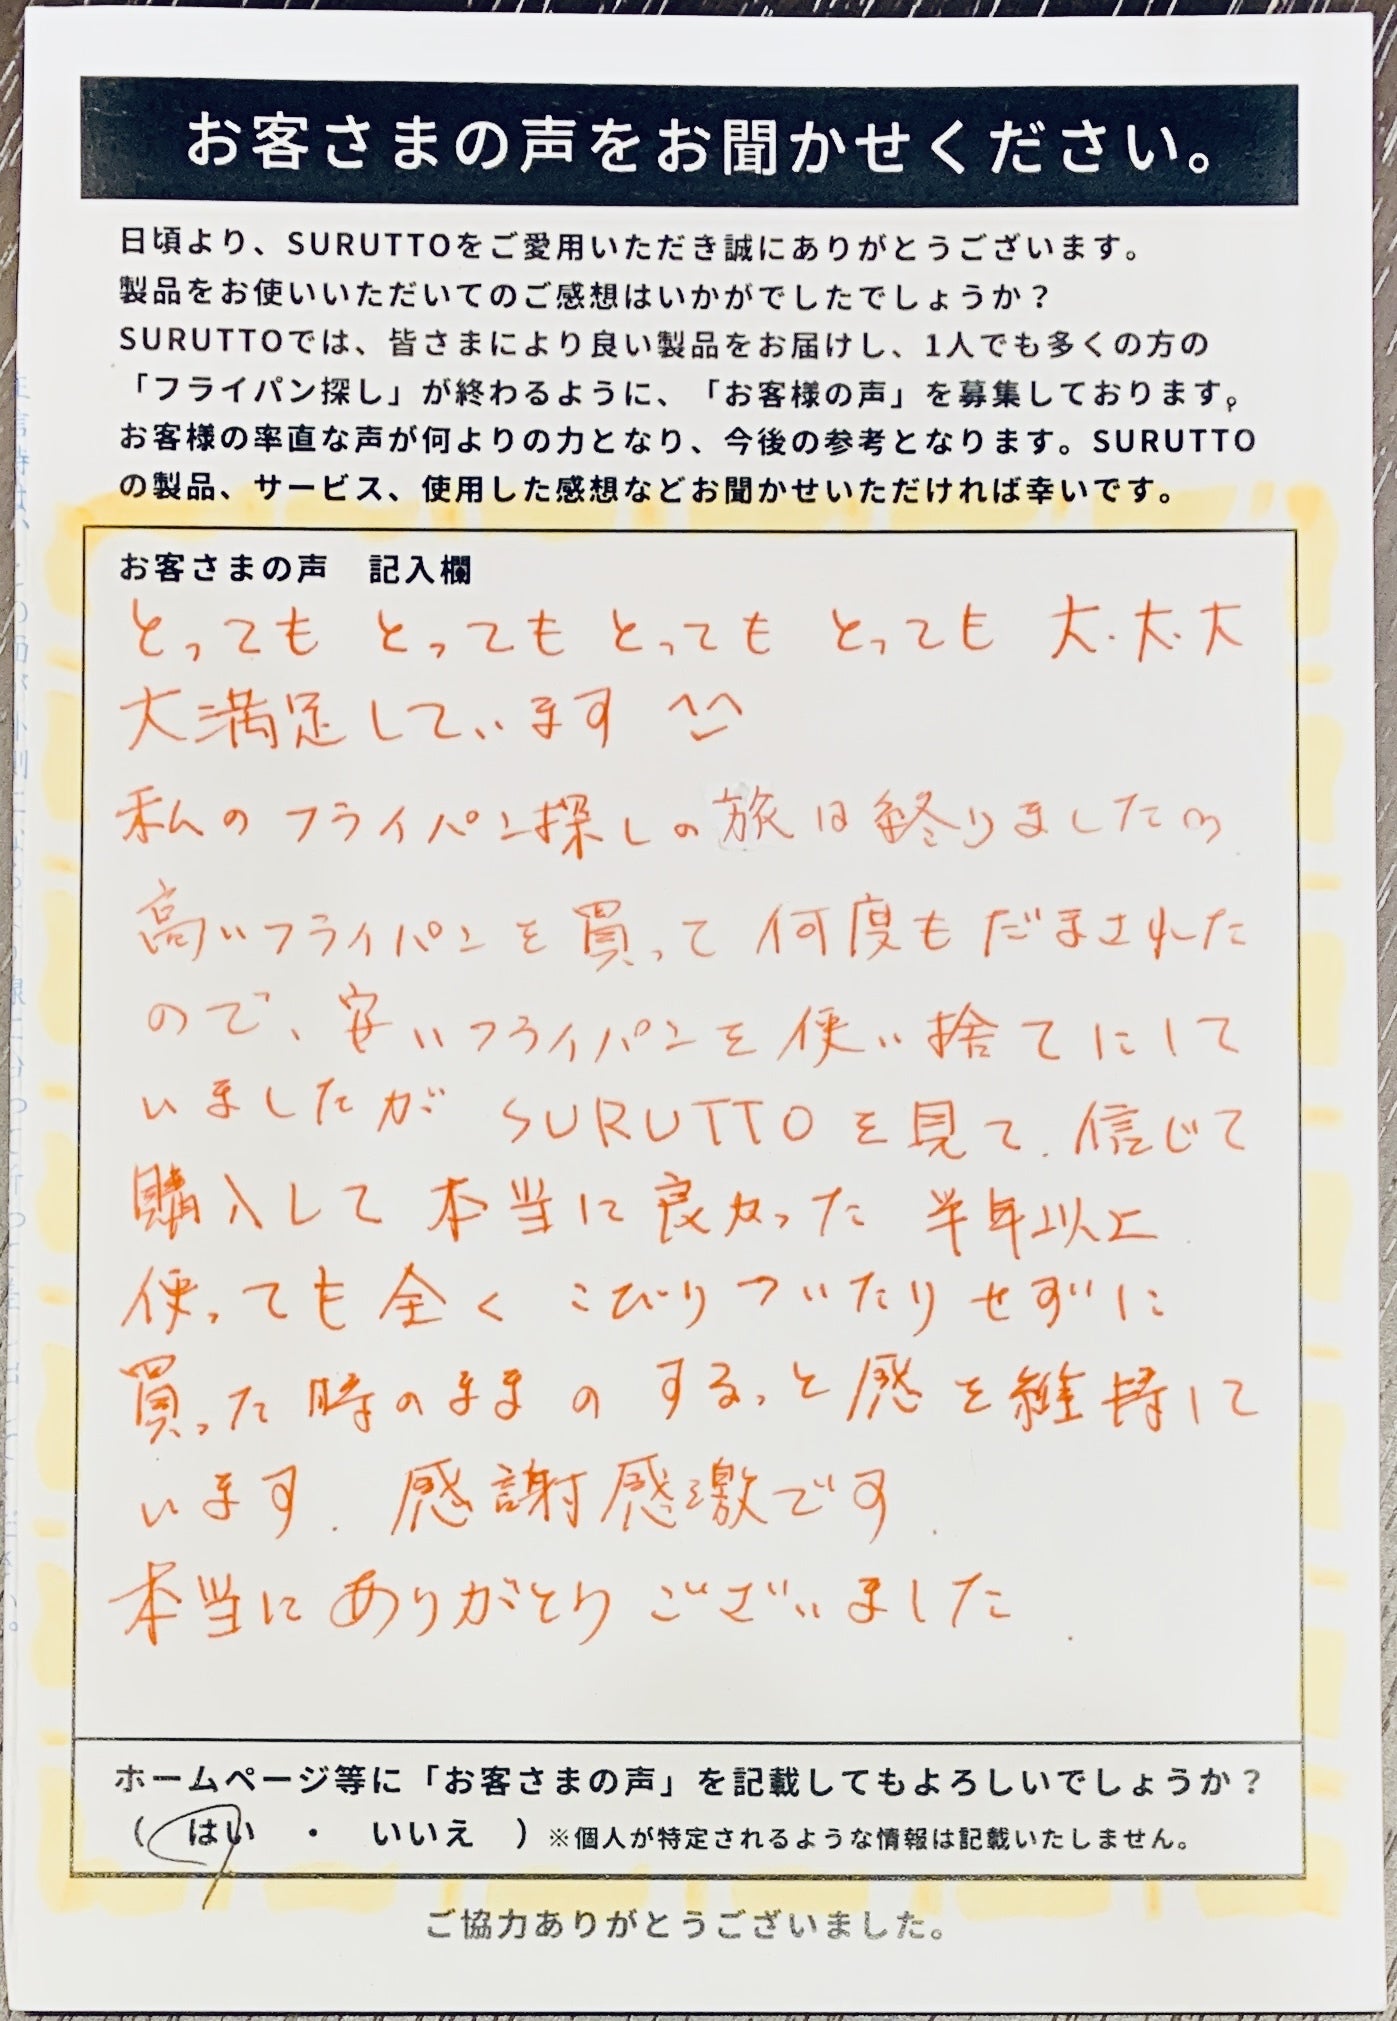 お客さまの声をお聞かせください。
日頃より、SURUTTOをご愛用いただき誠にありがとうございます。
製品をお使いいただいてのご感想はいかがでしたでしょうか？
SURUTTOでは、皆さまにより良い製品をお届けし、1人でも多くの方の
「フライパン探し」が終わるように、「お客様の声」を募集しております。
お客様の率直な声が何よりの力となり、今後の参考となります。SURUTTO
の製品、サービス、使用した感想などお聞かせいただければ幸いです。
お客さまの声　記入欄
とっても とっても とっても とっても 大・大・大
大満足しています ^^
私のフライパン探しの旅は終りました
高いフライパンを買って 何度もだまされた
ので、安いフライパンを使い捨てにして
いましたが SURUTTOを見て、信じて
購入して 本当に良かった 半年以上
使っても全く こびりついたりせずに
買った時のままの するっと感を維持して
います. 感謝感激です.
本当にありがとう ございました.
ホームページ等に「お客さまの声」を記載してもよろしいでしょうか？
（　はい　・　いいえ　）※個人が特定されるような情報は記載いたしません。
ご協力ありがとうございました。